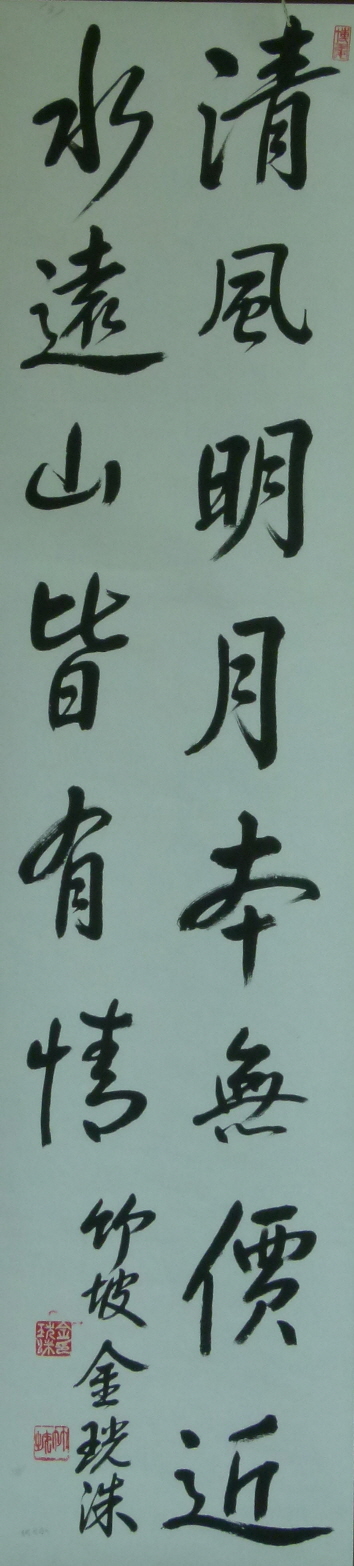 清風明月本無價近
水遠山皆有情
竹坡金珖洙